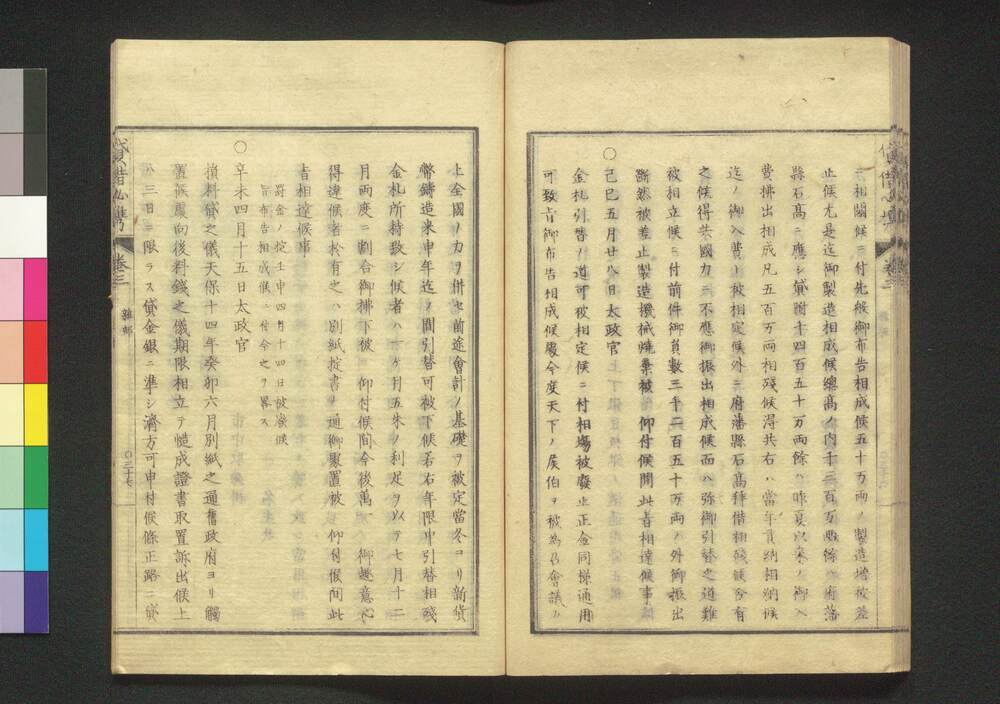 ニ相關候ニ付先般御布告相成候五千万両ノ製造増被差
止候尤是迄御製造相成候總高ノ内千三百万両餘ハ府藩
縣石高ニ應シ貸附千四百五十万両餘ハ昨夏以来ノ御入
費拂出相成凡五百万両相殘候得共右ハ當年貢納相納候
迄ノ御入費ト被相定候外ニ府藩縣石高拜借相殘候分有
之候得共國力ニ不應御振出相成候而ハ弥御引替之道難
被相立候ニ付前件御員数三千二百五十万両ノ外御振出
斷然被差止製造機械焼棄被 仰付候間此旨相達候事
〇己巳五月廿八日太政官
金札引替ノ道可被相定候ニ付相場被廢止正金同様通用
可致旨御布告相成候處今度天下ノ侯伯ヲ被為召會議ノ
上全國ノ力ヲ併セ前途會計ノ基礎ヲ被定當冬ヨリ新貨
幣鋳造来申年迄ノ間引替可被下候若右年限中引替相殘
金札所持致シ候者ハ一ヶ月五朱ノ利足ヲ以テ七月十二
月両度ニ割合御拂下被 仰付候間今後萬一 御趣意心
得違候者於有之ハ別紙掟書ノ通御處置被 仰付候間此
旨相達候事
罰金ノ掟壬申四月十四日被廢候
旨布告相成候ニ付今之ヲ畧ス
〇辛未四月十五日太政官
損料貸之儀天保十四年癸卯六月別紙之通舊政府ヨリ觸
置候處向後料錢之儀期限相立テ慥成證書取置訴出候上
ハ三十日ニ限ラス貸金銀ニ準シ濟方可申付候條正路ニ貸
卷三
雜部
〇三十七